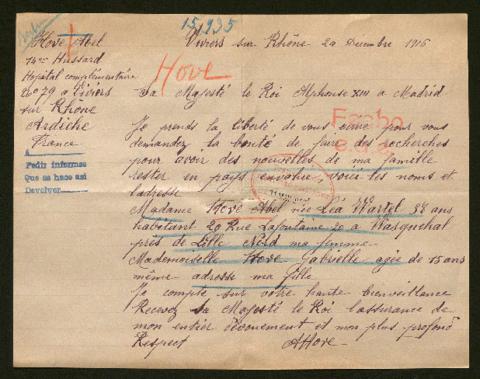 15,935
Hove Abel
14me Hussard
Hopital complémentaire
No 79 a Viviers
sur Rhône
Ardèche
France
A
Pedir informes
Que se hace así
Devolver
Viviers sur Rhône 29 Decembre 1915
Hove
Sa Majesté le Roi Alphonse XIII a Madrid
Je prends la liberté de vous écrire pour vous
demander la bonté de faire des recherches
pour avoir des nouvelles de ma famille
rester en pays envahie, voici les noms et
ladresse
Madame Hove Abel née Léa Wartel 38 ans
habitant 20 Rue Lafontaine 20 a Wasquehal
près de Lille Nord ma femme
Mademoiselle Hove Gabrielle agée de 15 ans
même adresse ma fille
Je compte sur votre haute bienveillance
Recevez sa Majesté le Roi lassurance de
mon entier dévouement et mon plus profond
Respect
AHove